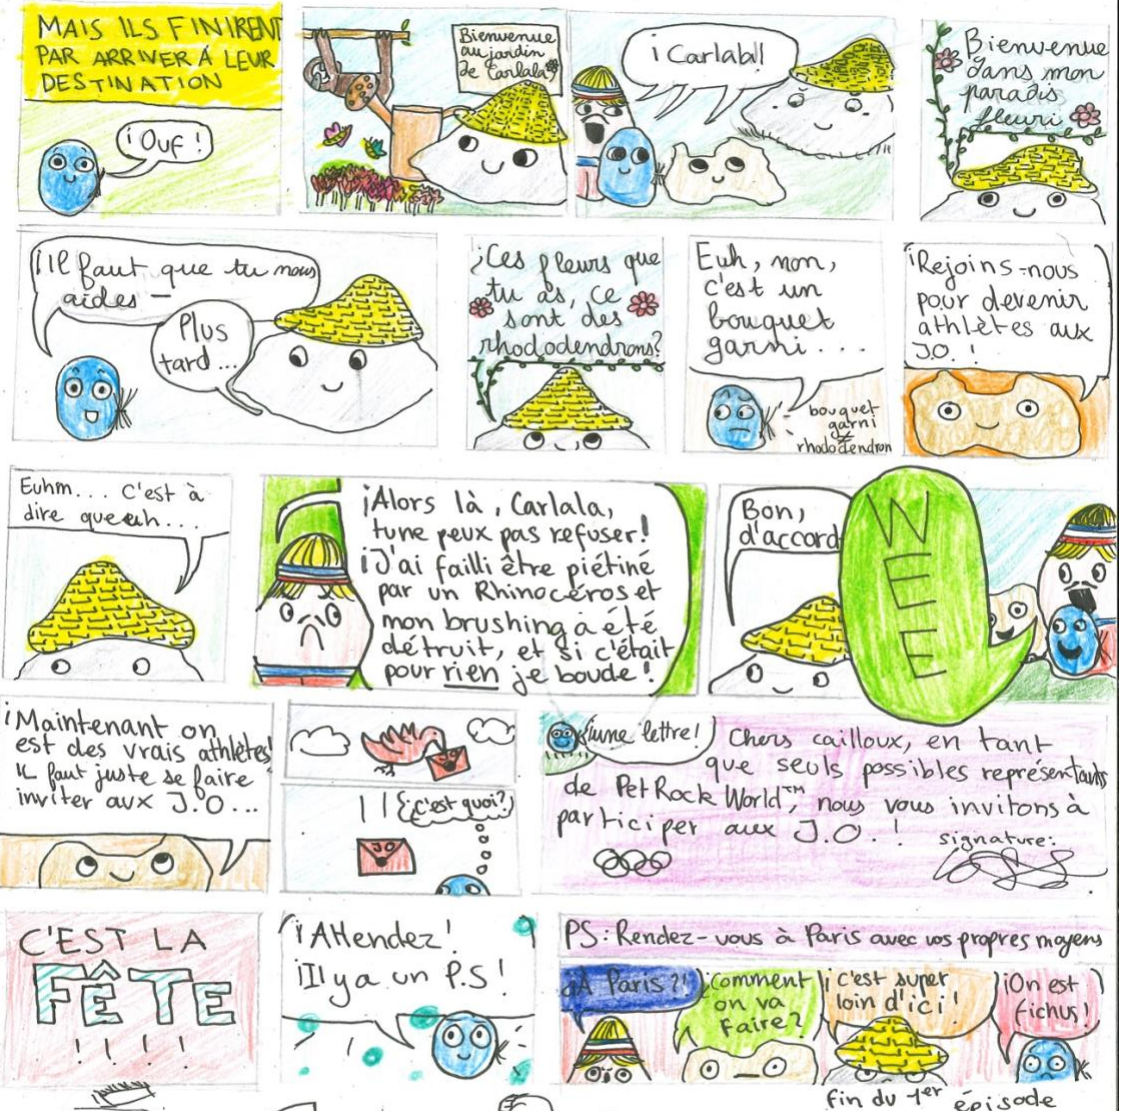 MAIS ILS FINIRENT
PAR ARRIVER À LEUR
DESTINATION
¡Ouf!
Bienvenue
au jardin
de Carlala
¡Carlaba!!
Bienvenue
dans mon
paradis
fleuri
¡Il faut que tu nous
aides —
Plus
tard...
¿Ces fleurs que
tu as, ce
sont des
rhododendrons?
Euh, non,
c'est un
bouquet
garni...
bouquet
garni
≠
rhododendron
¡Rejoins-nous
pour devenir
athlètes aux
J.O.!
Euhm... C'est à
dire queeuh...
¡Alors là, Carlala,
tu ne peux pas refuser!
¡J'ai failli être piétiné
par un Rhinocéros et
mon brushing a été
détruit, et si c'était
pour rien je boude!
Bon,
d'accord
WEEE
¡Maintenant on
est des vrais athlètes!
Il faut juste se faire
inviter aux J.O...
¿c'est quoi?
JO
¡une lettre!
Chers cailloux, en tant
que seuls possibles représentants
de Pet Rock World™, nous vous invitons à
participer aux J.O.!
signature:
C'EST LA
FÊTE
!!!!
¡Attendez!
¡Il y a un P.S!
PS: Rendez-vous à Paris avec vos propres moyens
¿À Paris?!
¿Comment
on va
faire?
¡c'est super
loin d'ici!
¡On est
fichus!
fin du 1er épisode